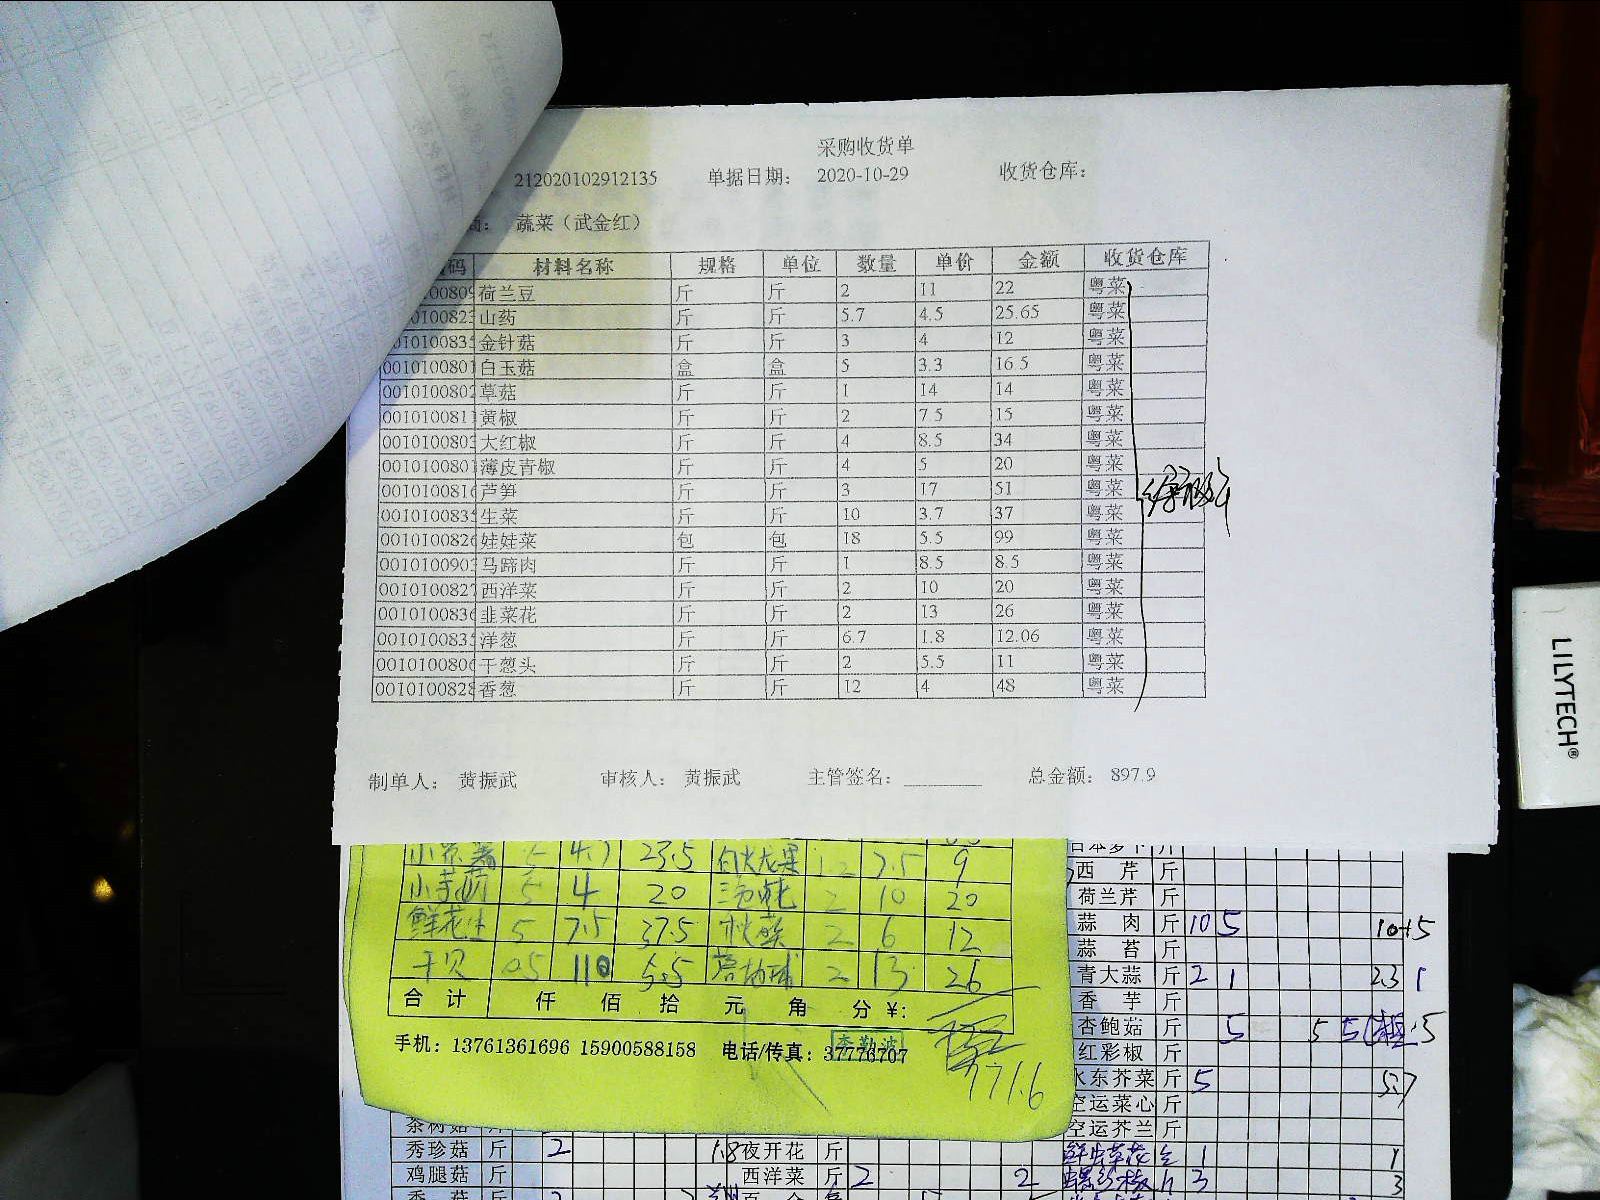 采购收货单
212020102912135 单据日期： 2020-10-29 收货仓库：
商： 蔬菜（武金红）
码 材料名称 规格 单位 数量 单价 金额 收货仓库
00809 荷兰豆 斤 斤 2 11 22 粤菜
0100823 山药 斤 斤 5.7 4.5 25.65 粤菜
010100835 金针菇 斤 斤 3 4 12 粤菜
0010100801 白玉菇 盒 盒 5 3.3 16.5 粤菜
0010100802 草菇 斤 斤 1 14 14 粤菜
0010100811 黄椒 斤 斤 2 7.5 15 粤菜
0010100803 大红椒 斤 斤 4 8.5 34 粤菜
0010100801 薄皮青椒 斤 斤 4 5 20 粤菜
0010100816 芦笋 斤 斤 3 17 51 粤菜
0010100835 生菜 斤 斤 10 3.7 37 粤菜
0010100826 娃娃菜 包 包 18 5.5 99 粤菜
0010100903 马蹄肉 斤 斤 1 8.5 8.5 粤菜
0010100827 西洋菜 斤 斤 2 10 20 粤菜
0010100836 韭菜花 斤 斤 2 13 26 粤菜
0010100835 洋葱 斤 斤 6.7 1.8 12.06 粤菜
0010100806 干葱头 斤 斤 2 5.5 11 粤菜
0010100828 香葱 斤 斤 12 4 48 粤菜
制单人： 黄振武 审核人： 黄振武 主管签名： 总金额： 897.9
23.5 白火龙果 12 7.5 9
5 4 20 2 10 20
鲜花生 5 7.5 37.5 2 6 12
干贝 0.5 110 2 13 26
合计 仟 佰 拾 元 角 分 ¥:
手机：13761361696 15900588158 电话/传真：37776707
李勤波
771.6
日本萝卜 斤
西芹 斤
荷兰芹 斤
蒜肉 斤 10 5 10+5
蒜苔 斤
青大蒜 斤 2 1 2.3 1
香芋 斤
杏鲍菇 斤 5 5 5
红彩椒 斤
水东芥菜 斤 5 5.7
空运菜心 斤
空运芥兰 斤
1 1
螺丝椒 斤 3 3
茶树菇 斤
秀珍菇 斤 2 1.8 夜开花 斤
鸡腿菇 斤 西洋菜 斤 2 2
LILYTECH®